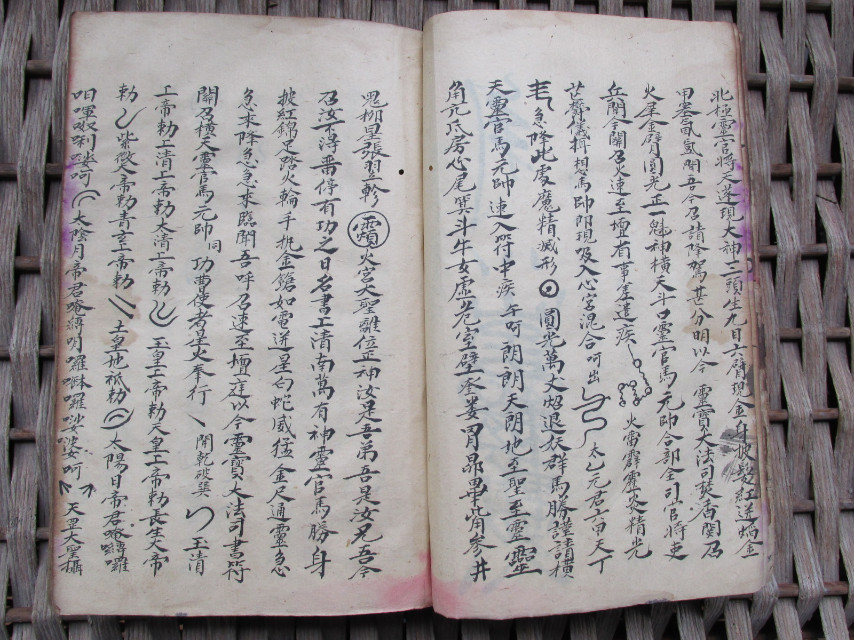 北極靈官將天蓬現大神三頭生九目六臂現金身披髮紅送蝸金
甲塞氣氤開吾今召請降駕甚分明以今 靈寶大法司焚香関召
火犀金臂圓光正一魁神橫天斗口靈官馬元帥合部全司官將吏
兵聞今關召火速至壇有事差遣疾 火雷霹靈炎精光
芒齊儀輯想馬帥即現吸入心宮混合呵出 太乙元君六甲天丁
急降此處魔精滅形 圓光萬丈烟退妖群馬勝謹請橫
天靈官馬元帥速入符中疾 午呵朗朗天朗地至聖至靈
角亢氐房心尾箕斗牛女虛危室壁奎婁胃昴畢觜參井
鬼柳星張翌軫 火宮大聖離位正神汝是吾弟吾是汝兄吾今
召汝不得番停有功之日名書上清南萬有神靈官馬勝身
披紅錦足踏火輪手挑金鎗如電送星白蛇威猛金尺通靈急
急來降急急來臨聞吾呼召速至壇庭以今靈寶大法司書符
關召橫天靈官馬元帥同功曹使者生火奉行 開乾破巽 玉清
上帝勅上清上帝勅太清上帝勅 玉皇上帝勅天皇上帝勅長生大帝
勅 紫微大帝勅青玄上帝勅 土皇地祇勅 太陽日帝君唵囀囉
太陰月帝君唵囀 天罡大聖攝